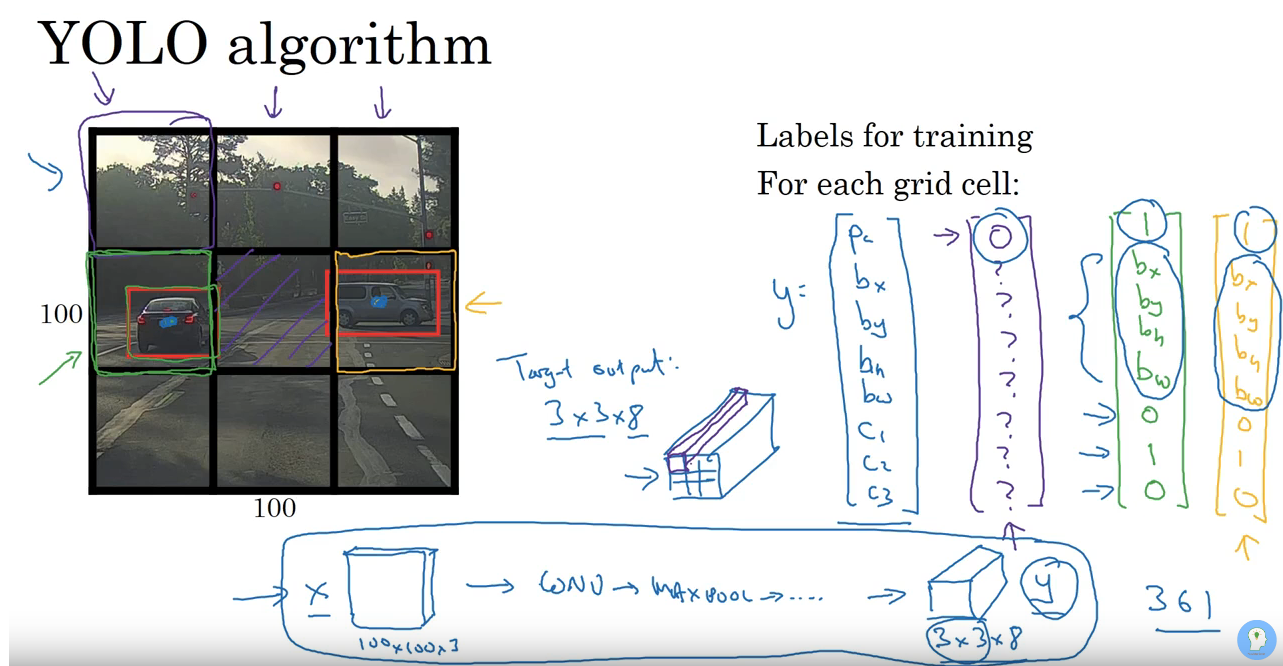 YOLO algorithm
Labels for training
For each grid cell:
y =
Pc
bx
by
bh
bw
C1
C2
C3
0
?
?
?
?
?
?
?
1
bx
by
bh
bw
0
1
0
1
bx
by
bh
bw
0
1
0
100
100
Target output:
3 x 3 x 8
X
100x100x3
→ CONV → MAXPOOL → .... →
3 x 3 x 8
y
361